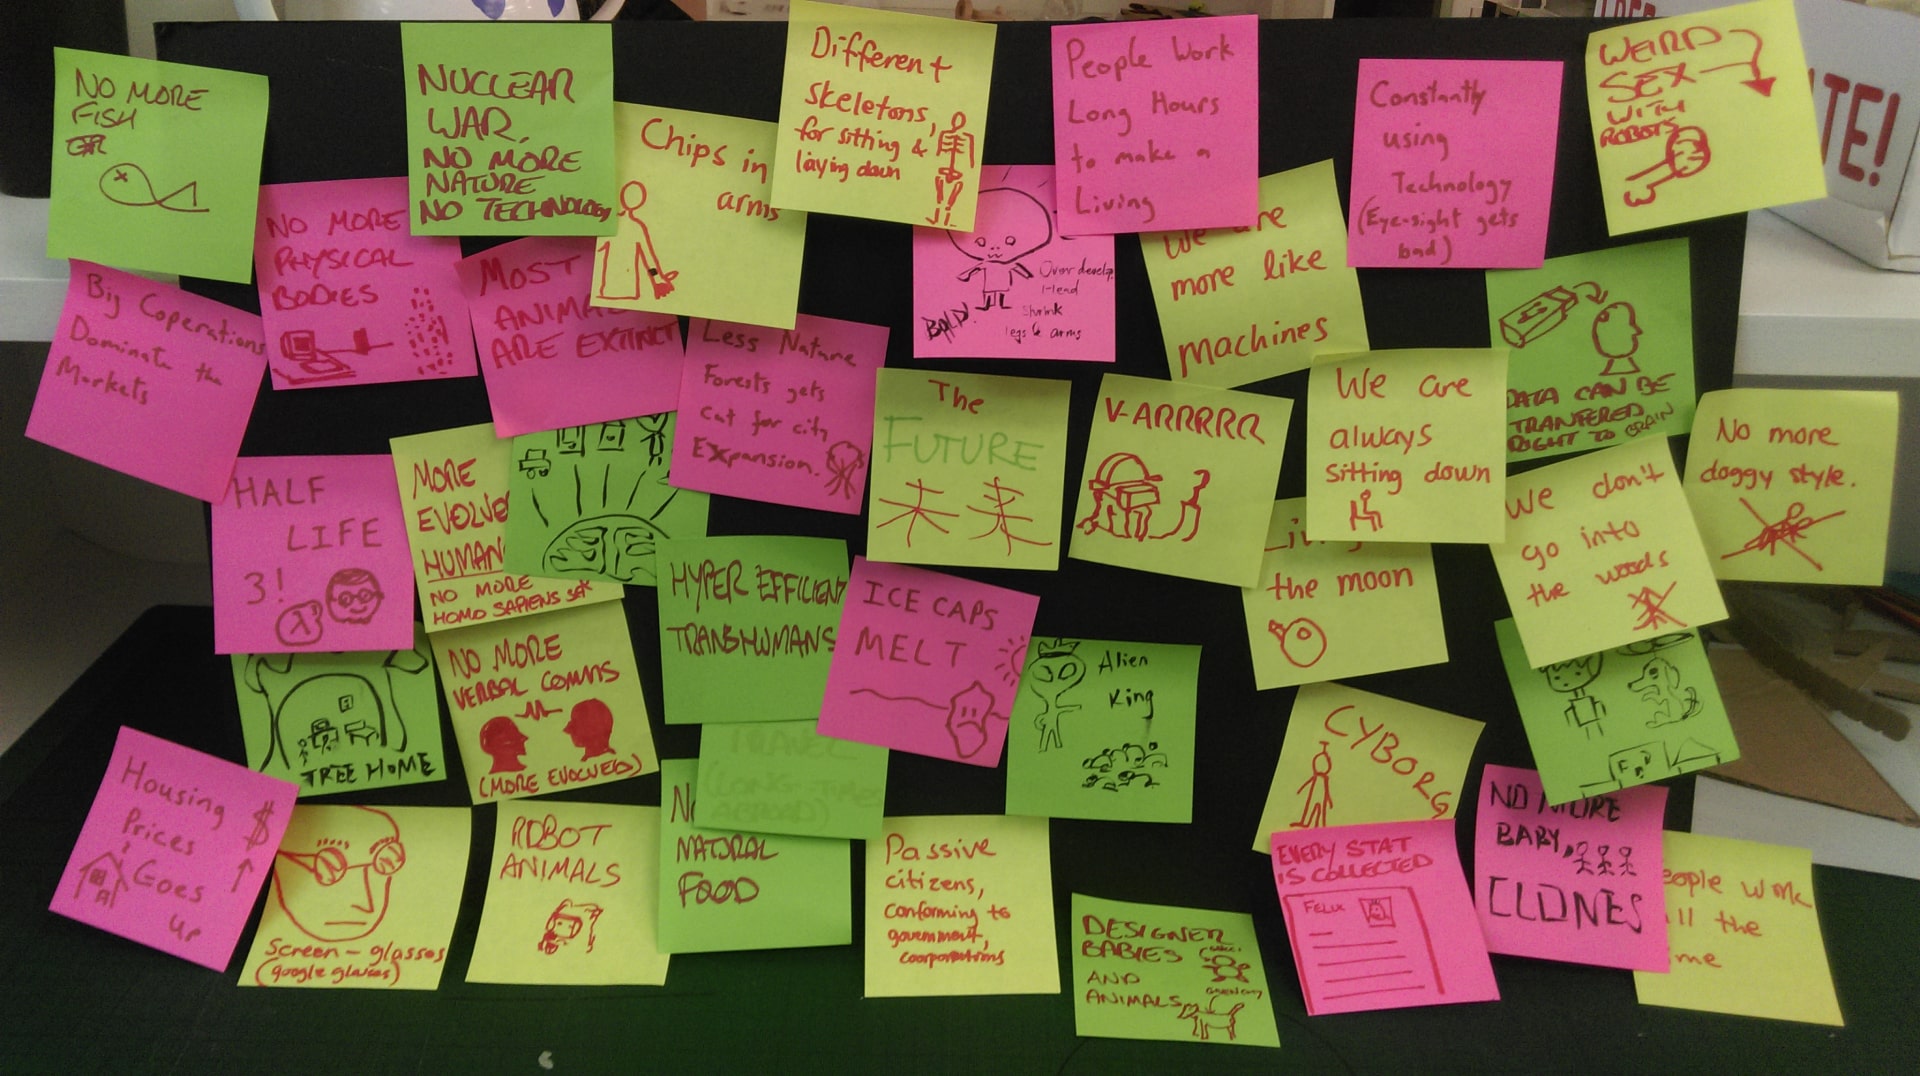 NO MORE
FISH
OR
NUCLEAR
WAR.
NO MORE
NATURE
NO TECHNOLOGY
Chips in
arms
Different
skeletons,
for sitting &
laying down
People Work
Long Hours
to make a
Living
Constantly
using
Technology
(Eye-sight gets
bad)
WEIRD
SEX
WITH
ROBOTS
TE!
NO MORE
PHYSICAL
BODIES
MOST
ANIMA
ARE EXTINCT
Over develop
Head
Shrink
legs & arms
BALD.
We are
more like
machines
DATA CAN BE
TRANFERED
RIGHT TO BRAIN
Big Coperations
Dominate the
Markets
Less Nature
Forests gets
cat for city
Expansion.
The
FUTURE
未来
V-ARRRRR
We are
always
sitting down
No more
doggy style.
HALF
LIFE
3!
λ3
MORE
EVOLVE
HUMAN
NO MORE
HOMO SAPIENS SEX
HYPER EFFICIENT
TRANSHUMANS
ICE CAPS
MELT
the moon
We don't
go into
the woods
TREE HOME
NO MORE
VERBAL COMMS
(MORE EVOLVED)
TRAVEL
(LONG-TIMES
ABROAD)
Alien
King
CYBORG
Housing
Prices
Goes
up
$
Screen-glasses
(google glasses)
ROBOT
ANIMALS
NO
NATURAL
FOOD
Passive
citizens,
conforming to
government,
coorporations
DESIGNER
BABIES
AND
ANIMALS
EVERY STAT
IS COLLECTED
FELIX
NO MORE
BABY,
CLONES
eople work
ll the
me